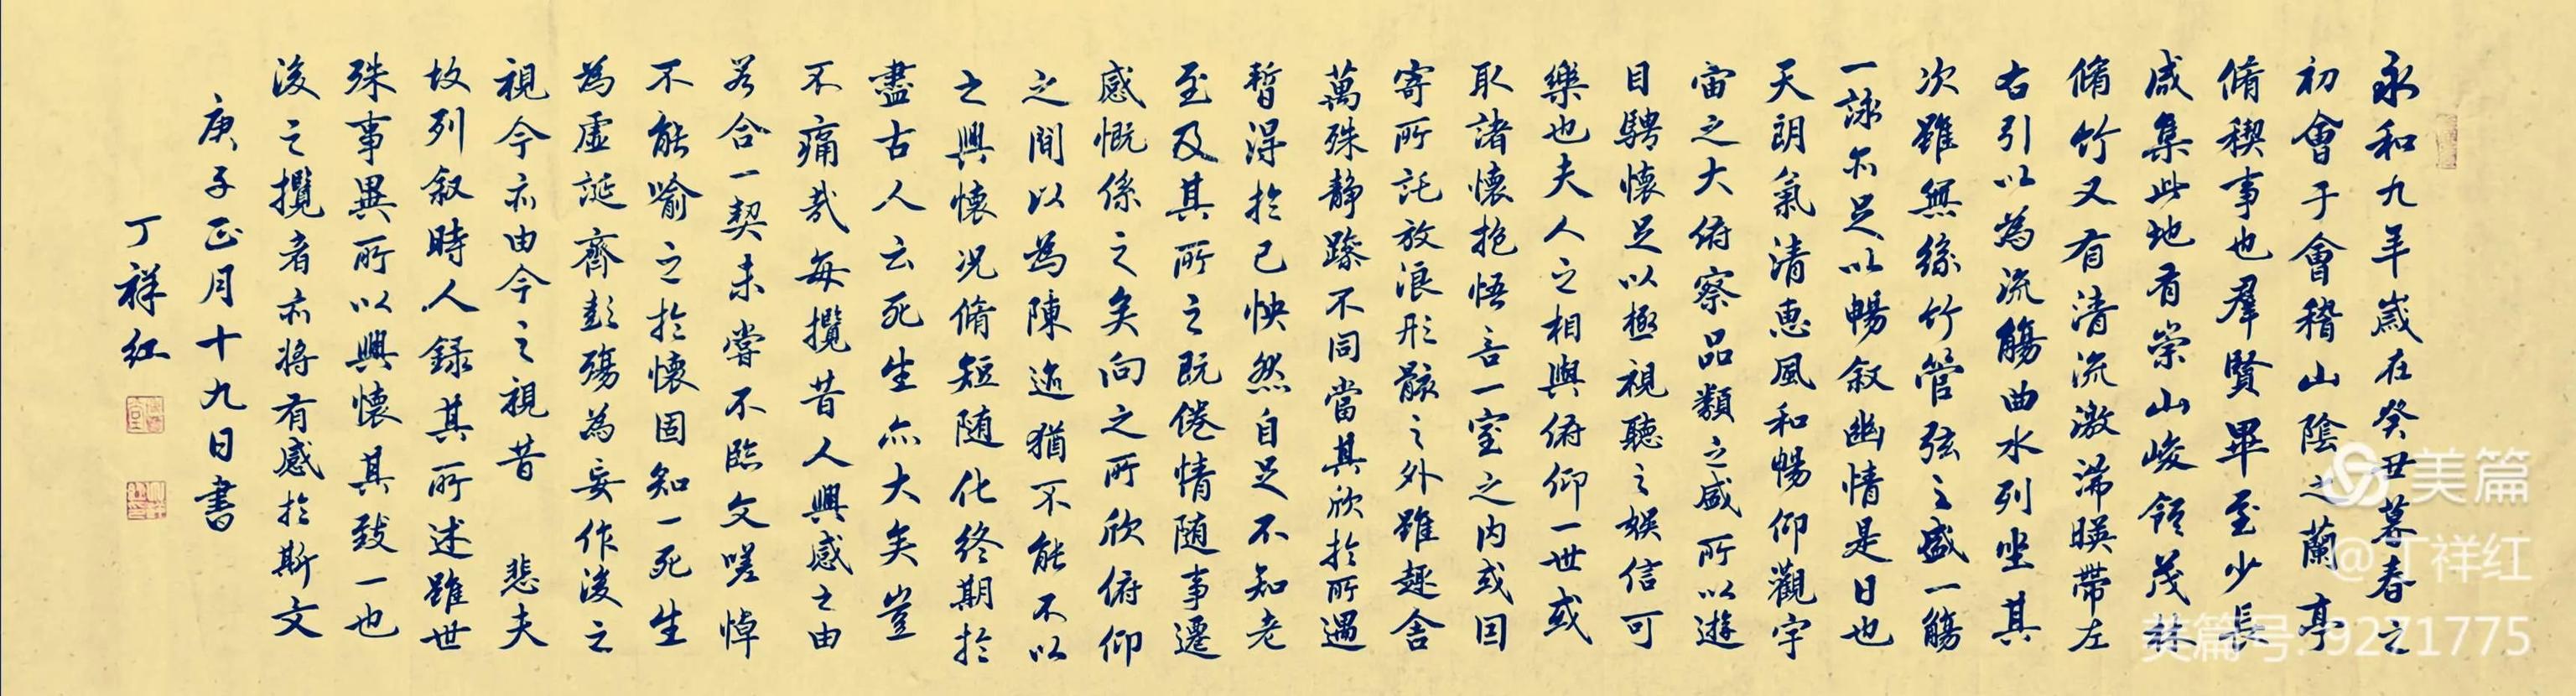 永和九年歲在癸丑暮春之
初會于會稽山陰之蘭亭
脩稧事也羣賢畢至少長
咸集此地有崇山峻領茂林
脩竹又有清流激湍暎帶左
右引以為流觴曲水列坐其
次雖無絲竹管弦之盛一觴
一詠亦足以暢叙幽情是日也
天朗氣清惠風和暢仰觀宇
宙之大俯察品類之盛所以遊
目騁懷足以極視聽之娛信可
樂也夫人之相與俯仰一世或
取諸懷抱悟言一室之内或因
寄所託放浪形骸之外雖趣舍
萬殊静躁不同當其欣於所遇
暫得於己怏然自足不知老
至及其所之既倦情随事遷
感慨係之矣向之所欣俯仰
之間以為陳迹猶不能不以
之興懷况脩短随化終期於
盡古人云死生亦大矣豈
不痛哉每攬昔人興感之由
若合一契未嘗不臨文嗟悼
不能喻之於懷固知一死生
為虛誕齊彭殤為妄作後之
視今亦由今之視昔 悲夫
故列叙時人録其所述雖世
殊事異所以興懷其致一也
後之攬者亦將有感於斯文
庚子正月十九日書
丁祥红
美篇
@丁祥红
美篇号:9271775